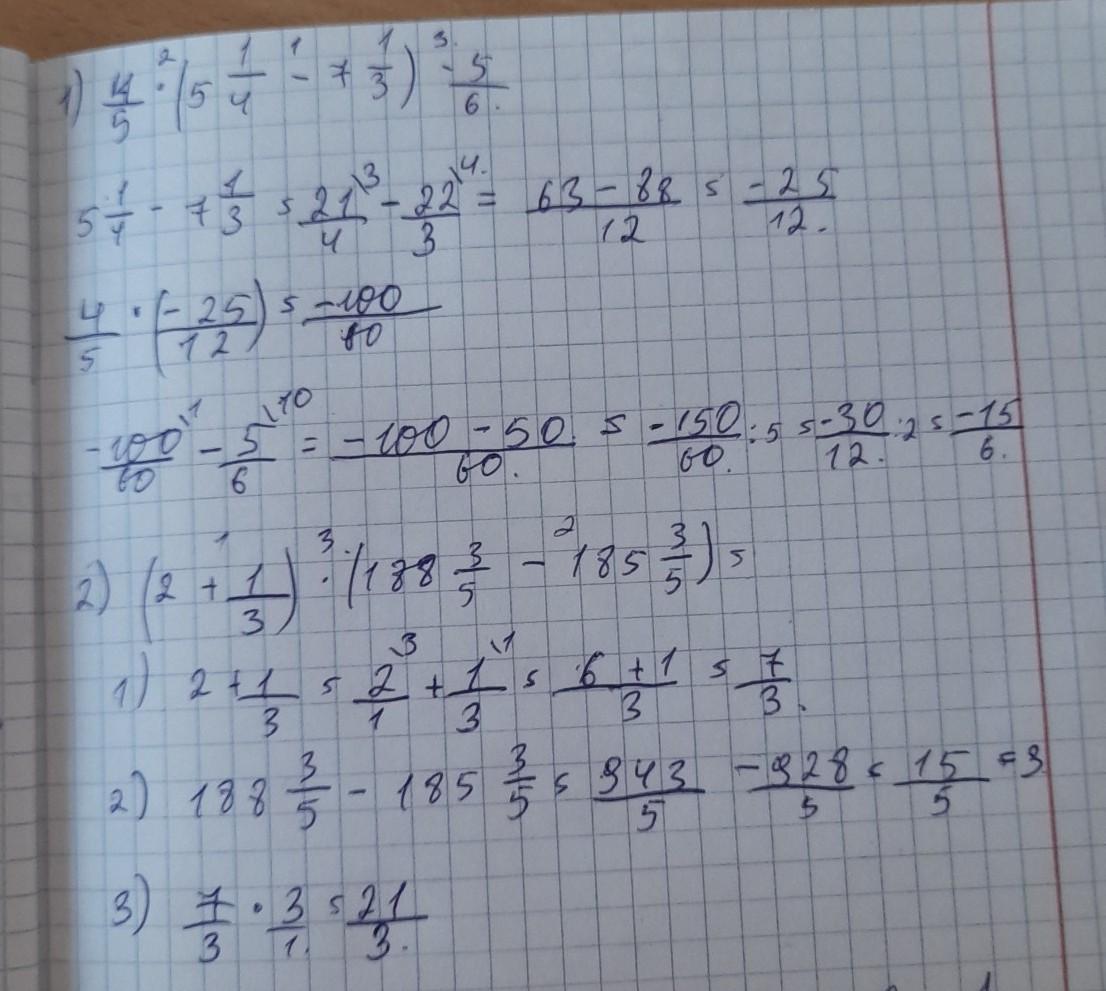 1) 4/5 ·² (5 1/4 -¹ 7 1/3) -³ 5/6.
5 1/4 - 7 1/3 = 21/4 \3 - 22/3 \4 = 63-88/12 = -25/12.
4/5 · (-25/12) = -100/60
-100/60 \1 - 5/6 \10 = -100-50/60. = -150/60. :5 = -30/12. :2 = -15/6.
2) (2 +¹ 1/3) ·³ (188 3/5 -² 185 3/5) =
1) 2 + 1/3 = 2/1 \3 + 1/3 \1 = 6+1/3 = 7/3.
2) 188 3/5 - 185 3/5 = 943/5 - 928/5 = 15/5 = 3
3) 7/3 · 3/1. = 21/3.